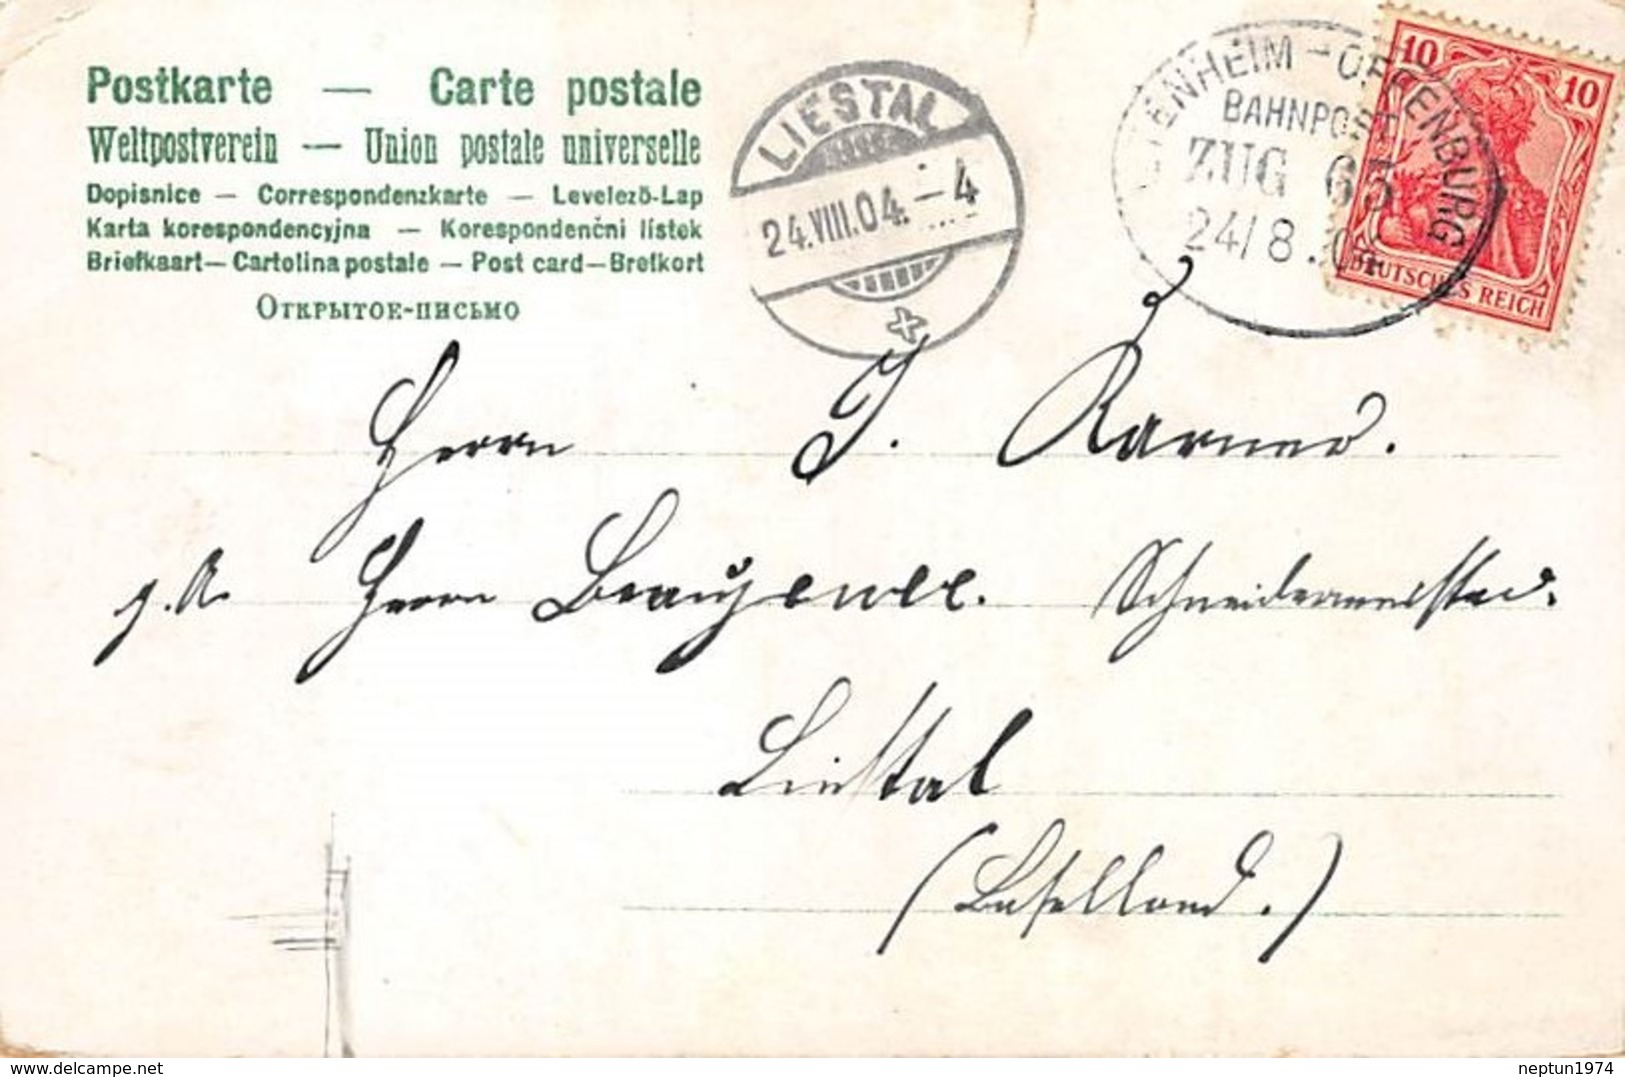 Postkarte — Carte postale
Weltpostverein — Union postale universelle
Dopisnice — Correspondenzkarte — Levelezö-Lap
Karta korespondencyjna — Korespondenčni listek
Briefkaart — Cartolina postale — Post card — Brefkort
Открытое-письмо
LIESTAL
24.VIII.04.-4
ENHEIM - OFFENBURG
BAHNPOST
ZUG 65
24/8.04
10 10
DEUTSCHES REICH
Herrn J.
Herrn Schneidermeister.
Liestal
(Baselland.)
delcampe.net
neptun1974